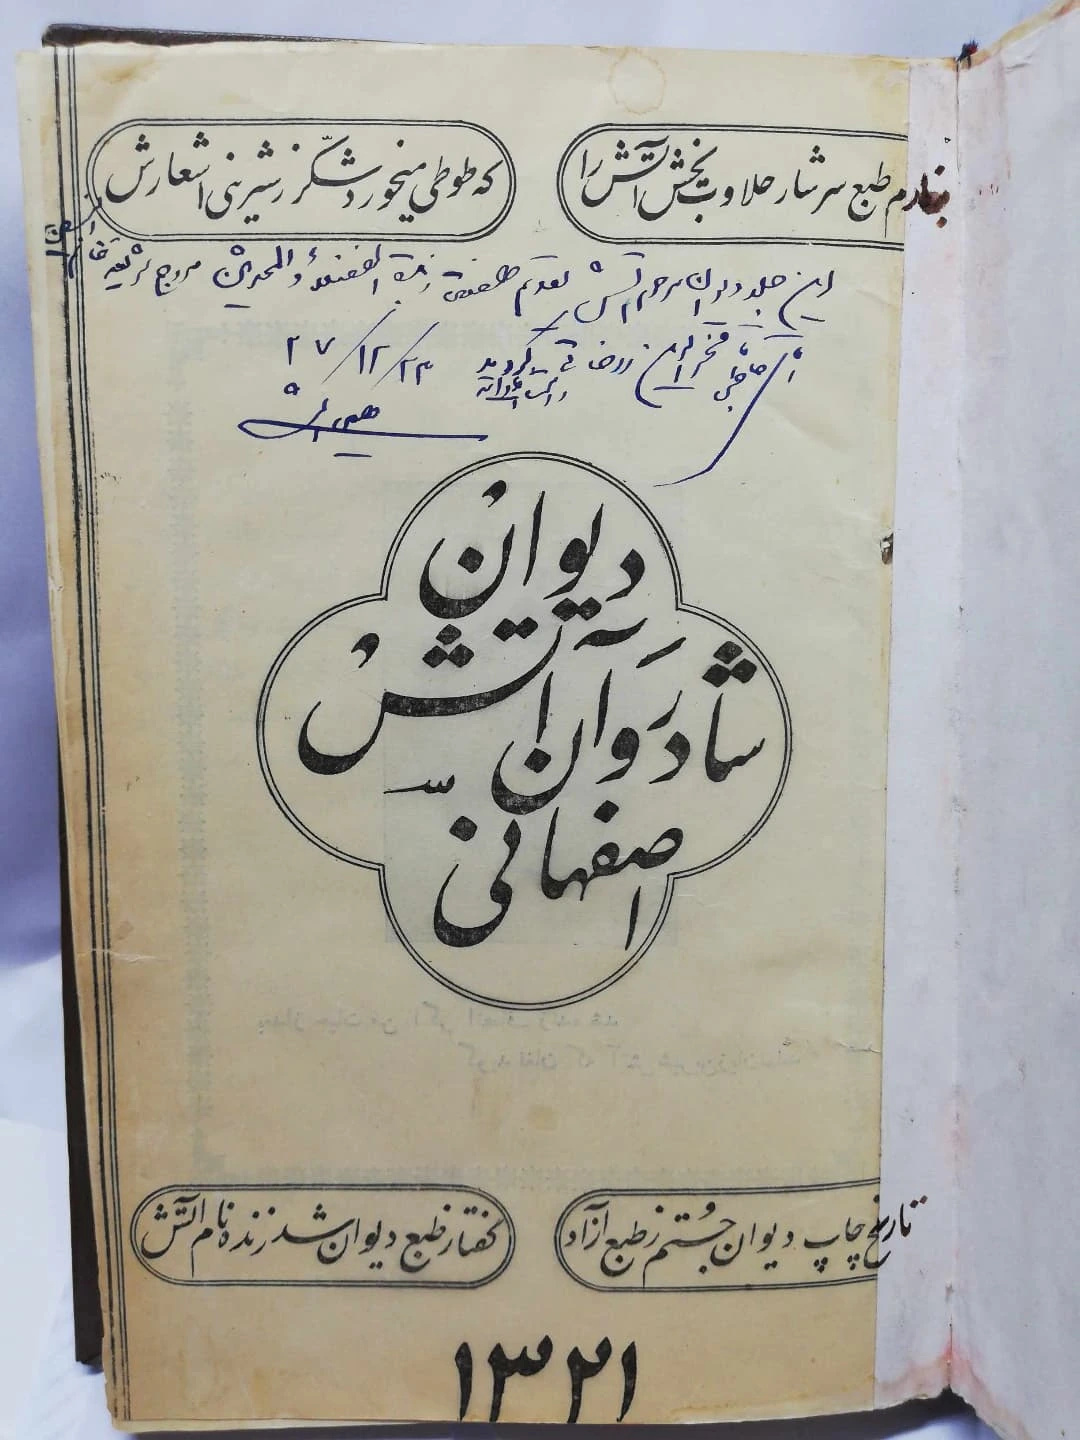 بنازم طبع سرشار حلاوت بخش آتش را
که طوطی میخورد شکّر ز شیرینی اشعارش
این جلد دیوان مرحوم آتش تقدیم
زبدة الفضلاء و المحدثین مروج الشریعه
آقای حاجی فخرالدین گردید
۲۷/۱۲/۲۳
دیوان
شادروان آتش
اصفهانی
تاریخ چاپ دیوان جُستم ز طبع آزاد
گفتا ز طبع دیوان شد زنده نام آتش
۱۳۲۱